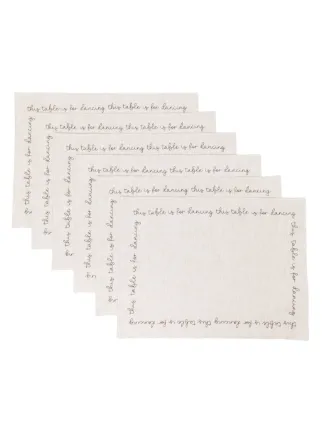 this table is for dancing this table is for dancing
this table is for dancing this table is for dancing
this table is for dancing this table is for dancing
this table is for dancing this table is for dancing
this table is for dancing this table is for dancing
this table is for dancing this table is for dancing
this table is for dancing
this table is for dancing this table is for dancing
this table is for dancing